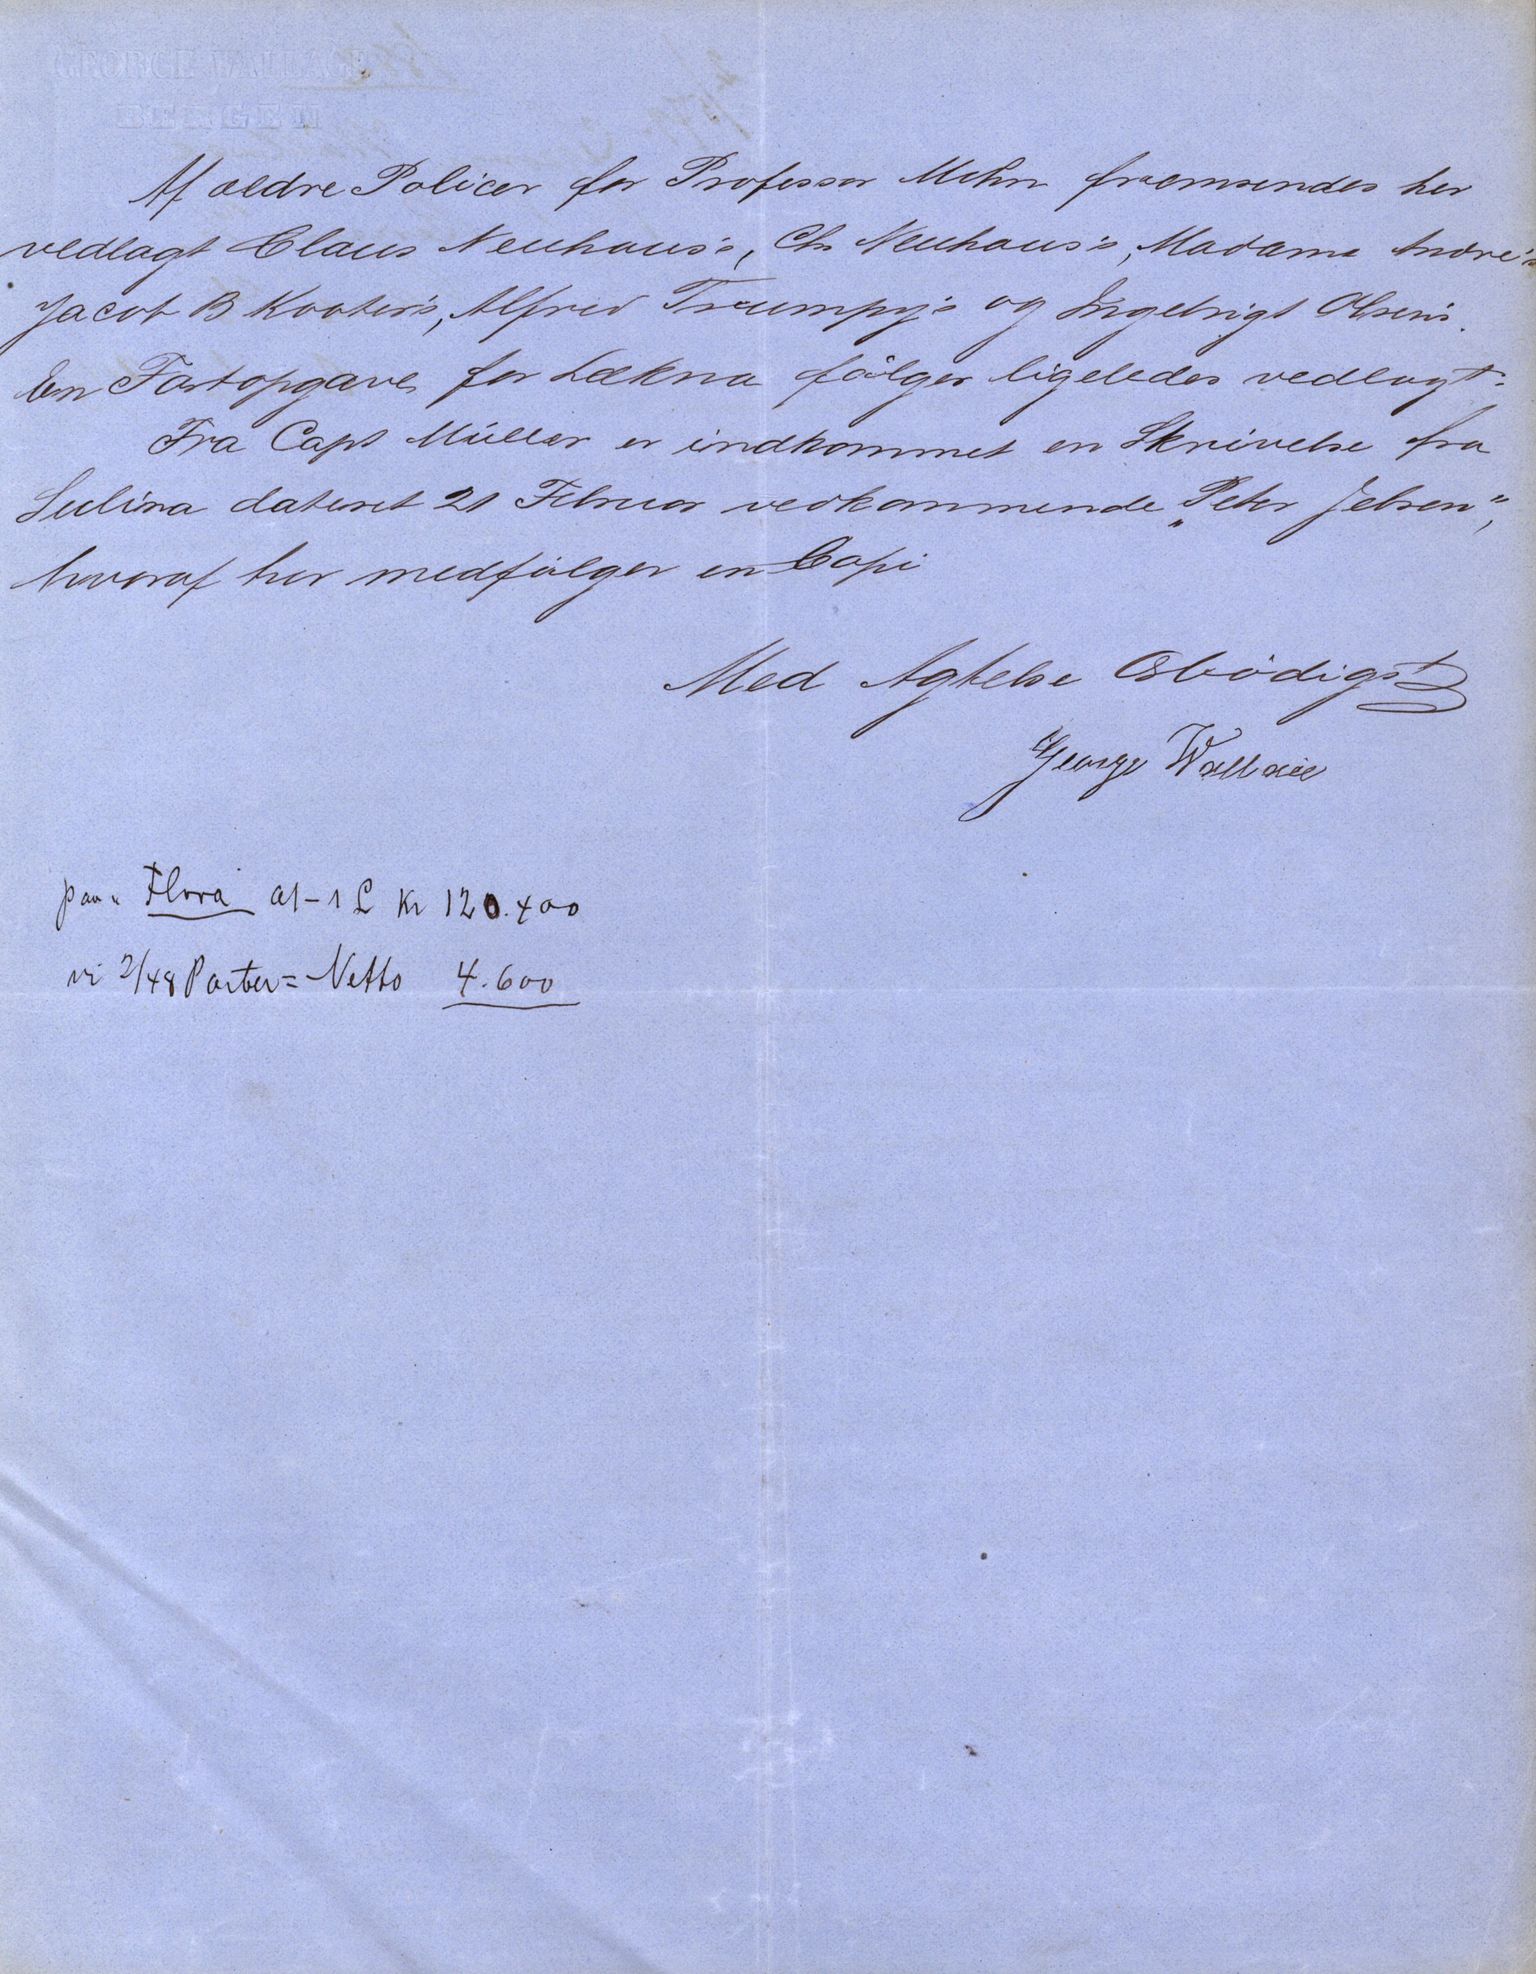 GEORGE WALLACE
BERGEN
Af ældre Policer for Professor Mohn fremsendes her
vedlagt Claus Neuhaus's, Chr Neuhaus's, Madame Andre's
Jacob B Kooter's, Alfred Trumpy's og Ingebrigt Olsen's.
En Fartopgave for Lækna følger ligeledes vedlagt.
Fra Capt Müller er indkommet en Skrivelse fra
Sulina dateret 21 Februar vedkommende „Peter Jebsen",
hvoraf her medfølger en Copi
Med Agtelse Ærbödigst
George Wallace
paa „ Flora at - 1 £ Kr 120.400
vi 2/48 Parter = Netto 4.600